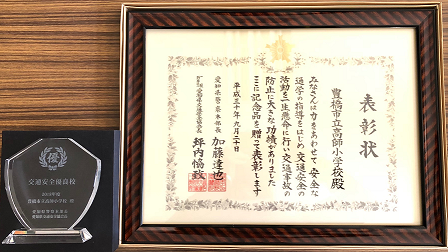 表彰状
豊橋市立高師小学校殿
みなさんは力をあわせて安全な
通学の指導をはじめ交通安全の
活動を一生懸命に行い交通事故の
防止に大きな功績がありました
ここに記念品を贈って表彰します
平成三十年九月二十日
愛知県警察本部長
加藤達也
坪内恊致
優
交通安全優良校
2018年度
豊橋市立高師小学校 殿